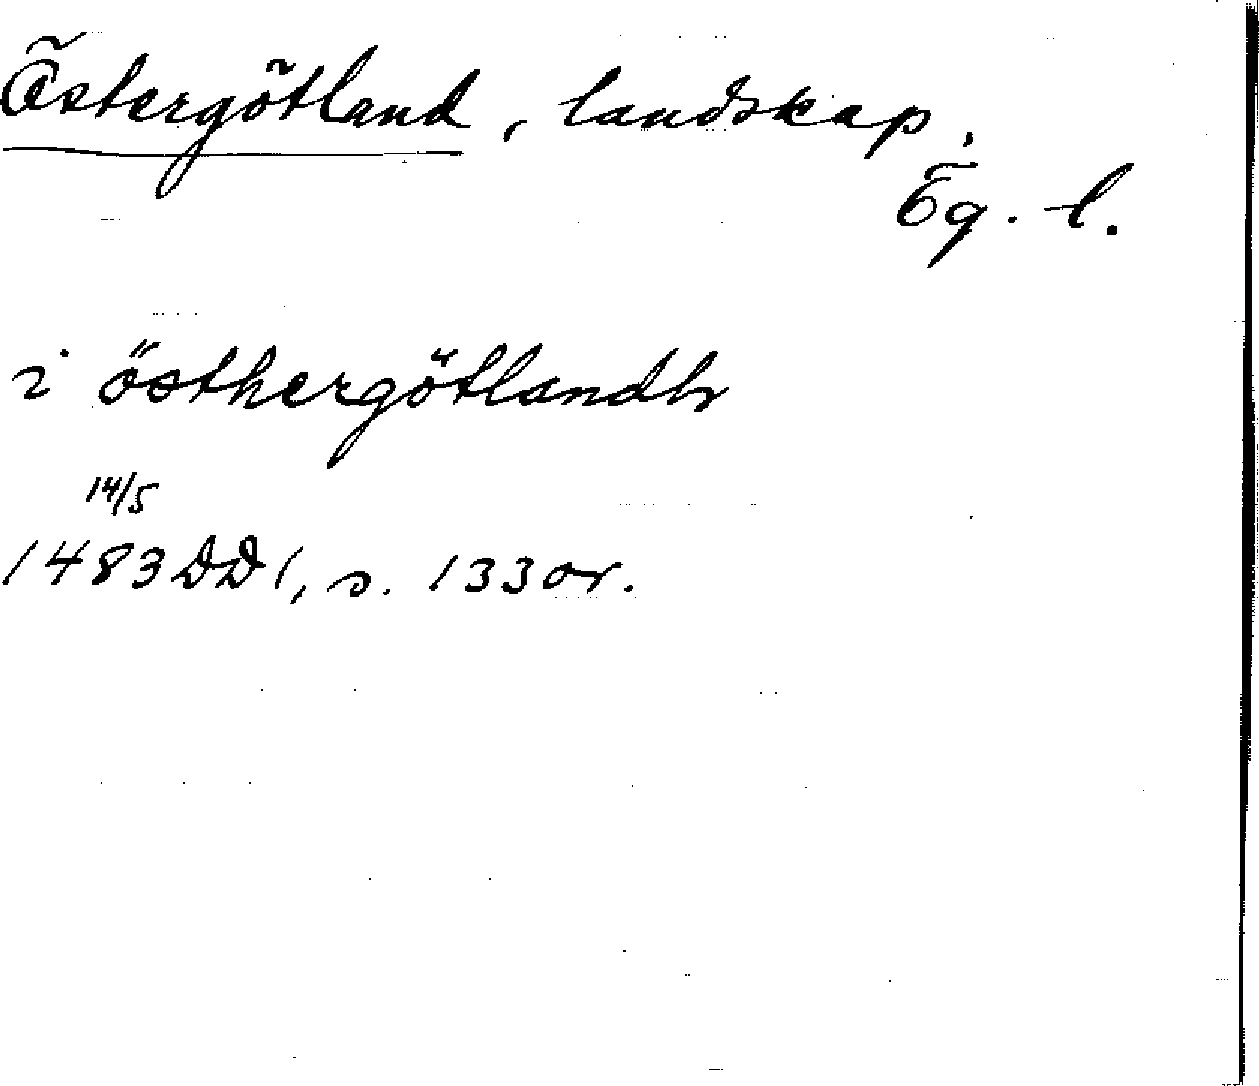 Östergötland, landskap,
Ög. l.
i östhergötlandh
14/5
1483 DD 1, s. 133 or.